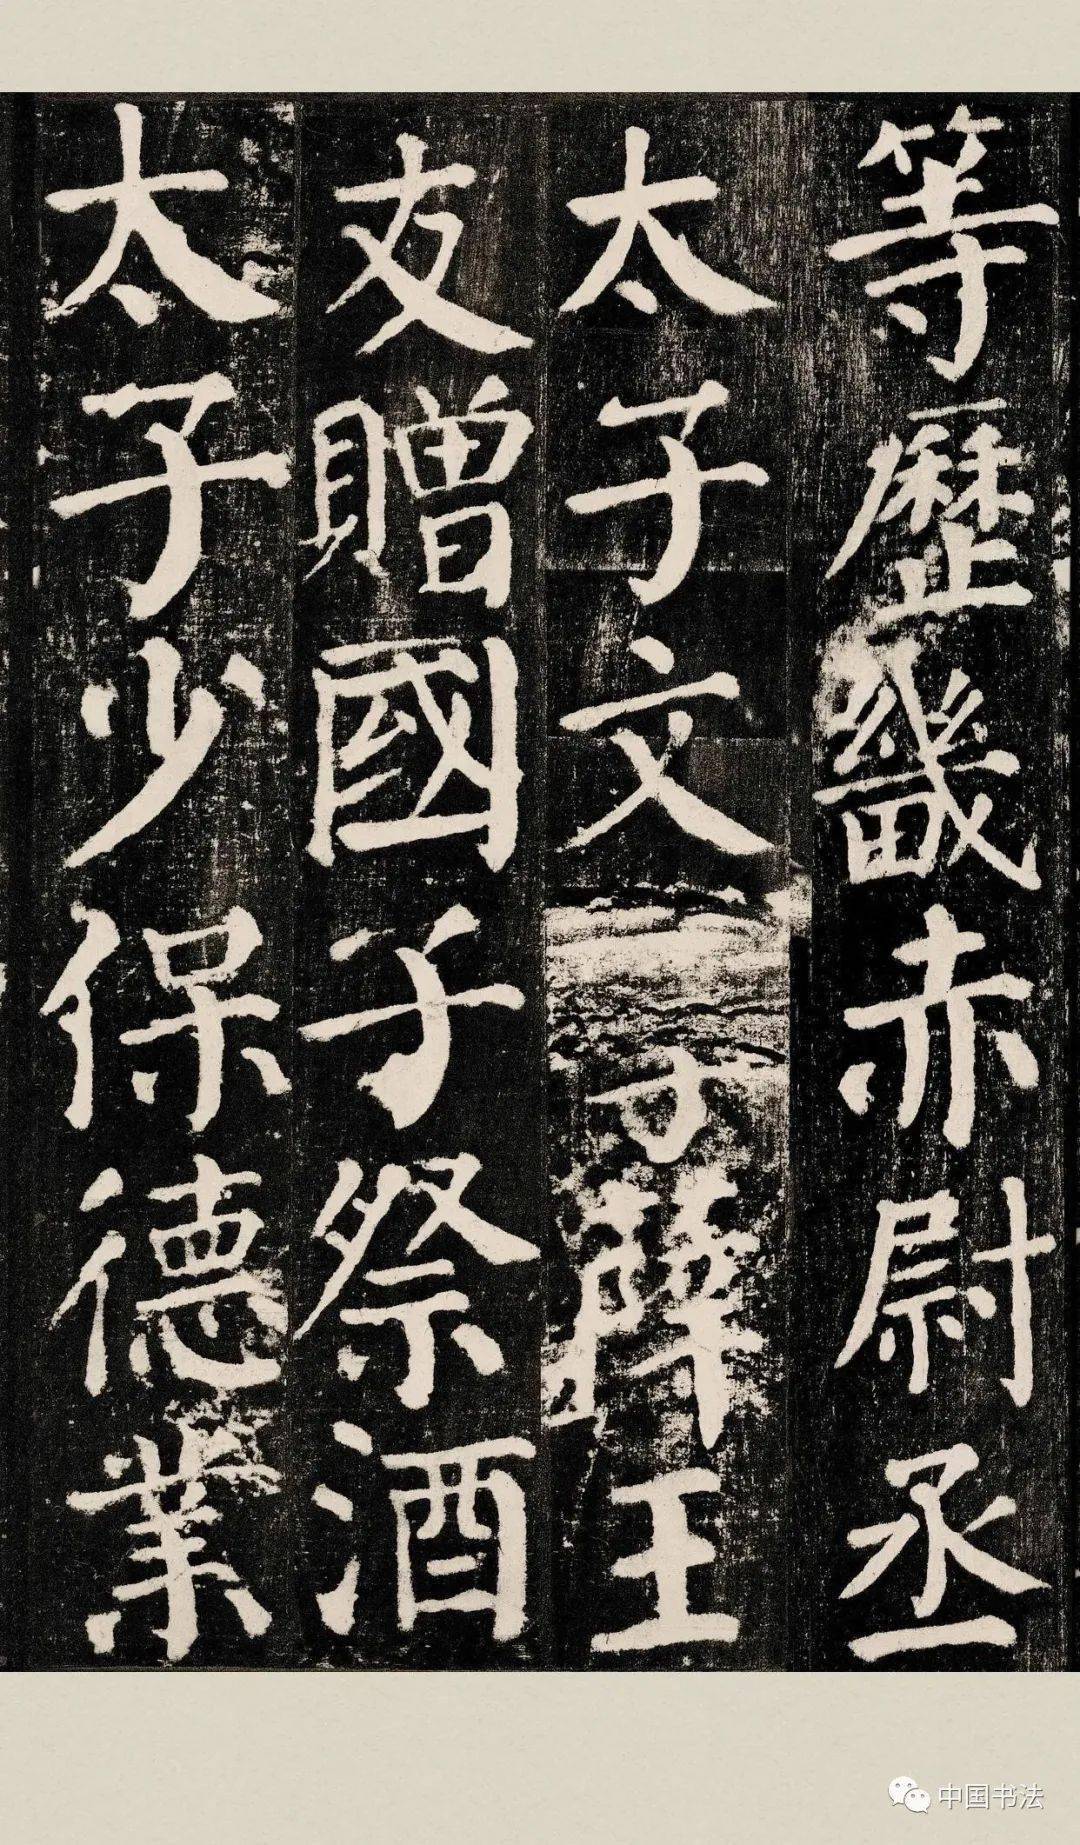 等歷畿赤尉丞
太子文學薛王
友贈國子祭酒
太子少保德業
中国书法